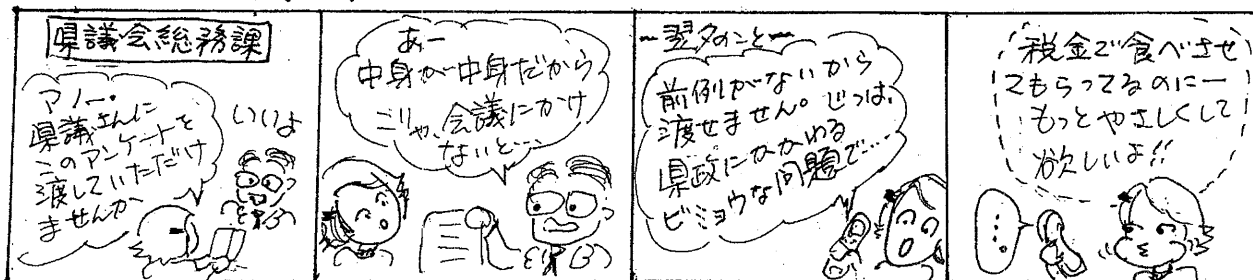 県議会総務課
アノー・
県議さんに
このアンケートを
渡していただけ
ませんか
いいよ
あー
中身が中身だから
こりゃ、会議にかけ
ないと…
〜翌夕のこと〜
前例がないから
渡せません。じつは、
県政にかかわる
ビミョウな問題で…
税金で食べさせ
てもらってるのにー
もっとやさしくして
欲しいよ!!
・・・・